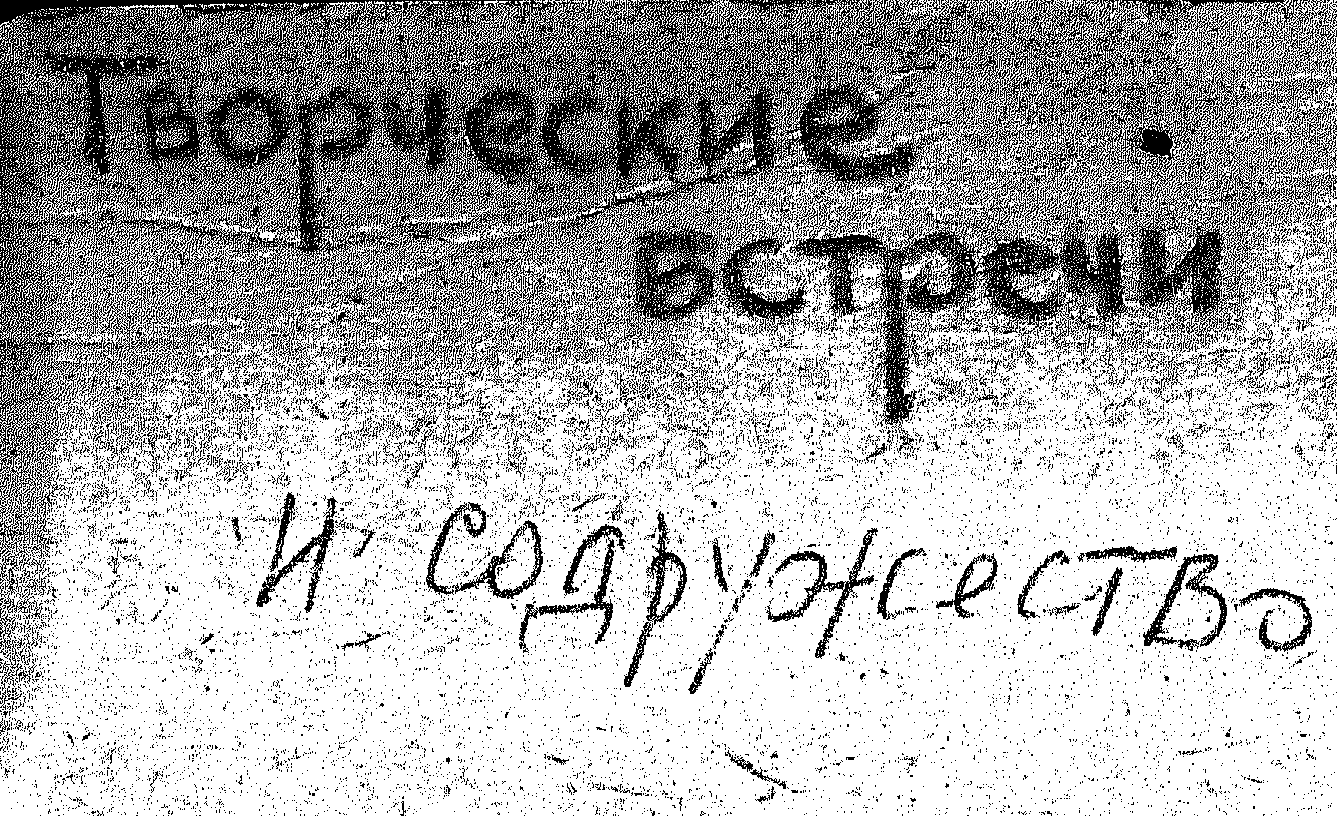 Творческие
встречи
"и" содружество